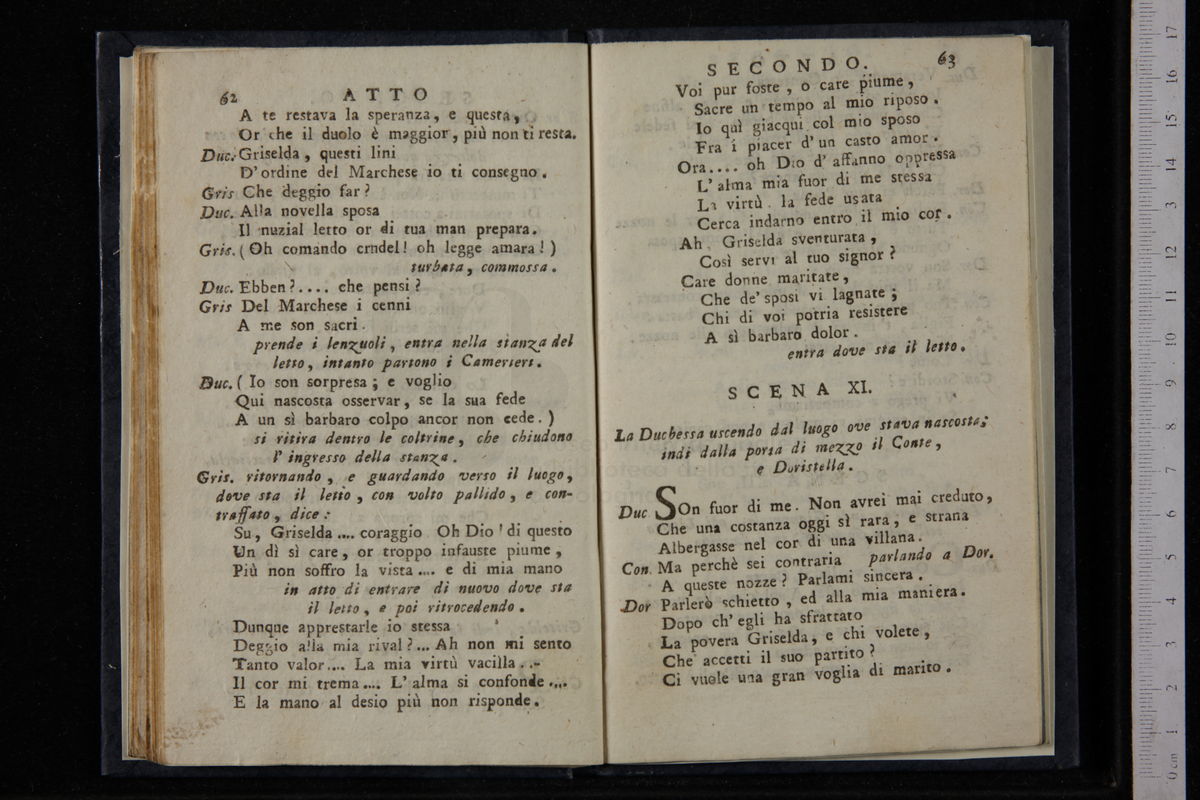 62 ATTO
A te restava la speranza, e questa,
Or che il duolo è maggior, più non ti resta.
Duc. Griselda, questi lini
D'ordine del Marchese io ti consegno.
Gris Che deggio far?
Duc. Alla novella sposa
Il nuzial letto or di tua man prepara.
Gris. (Oh comando crndel! oh legge amara!)
turbata, commossa.
Duc. Ebben?.... che pensi?
Gris Del Marchese i cenni
A me son sacri.
prende i lenzuoli, entra nella stanza del
letto, intanto partono i Camerieri.
Duc. (Io son sorpresa; e voglio
Qui nascosta osservar, se la sua fede
A un sì barbaro colpo ancor non cede.)
si ritira dentro le coltrine, che chiudono
l'ingresso della stanza.
Gris. ritornando, e guardando verso il luogo,
dove sta il letto, con volto pallido, e con-
traffato, dice:
Su, Griselda .... coraggio Oh Dio! di questo
Un dì sì care, or troppo infauste piume,
Più non soffro la vista .... e di mia mano
in atto di entrare di nuovo dove sta
il letto, e poi ritrocedendo.
Dunque apprestarle io stessa
Deggio alla mia rival?... Ah non mi sento
Tanto valor.... La mia virtù vacilla...-
Il cor mi trema.... L'alma si confonde....
E la mano al desio più non risponde.
SECONDO. 63
Voi pur foste, o care piume,
Sacre un tempo al mio riposo.
Io quì giacqui col mio sposo
Fra i piacer d'un casto amor.
Ora.... oh Dio d'affanno oppressa
L'alma mia fuor di me stessa
La virtù, la fede usata
Cerca indarno entro il mio cor.
Ah, Griselda sventurata,
Così servi al tuo signor?
Care donne maritate,
Che de' sposi vi lagnate;
Chi di voi potria resistere
A sì barbaro dolor.
entra dove sta il letto.
SCENA XI.
La Duchessa uscendo dal luogo ove stava nascosta;
indi dalla porta di mezzo il Conte,
e Doristella.
Duc SOn fuor di me. Non avrei mai creduto,
Che una costanza oggi sì rara, e strana
Albergasse nel cor di una villana.
Con. Ma perchè sei contraria parlando a Dor.
A queste nozze? Parlami sincera.
Dor Parlerò schietto, ed alla mia maniera.
Dopo ch'egli ha sfrattato
La povera Griselda, e chi volete,
Che accetti il suo partito?
Ci vuole una gran voglia di marito.
0 cm 1 2 3 4 5 6 7 8 9 10 11 12 13 14 15 16 17